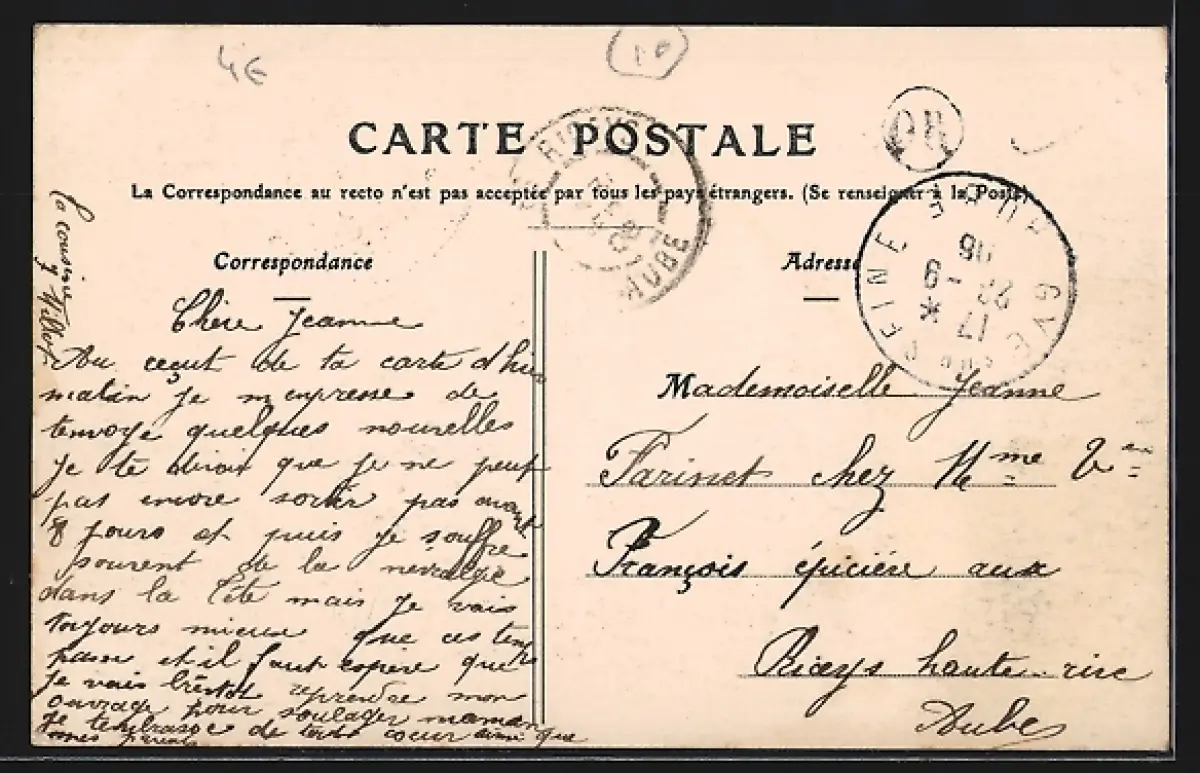 4€
10
OR
CARTE POSTALE
La Correspondance au recto n'est pas acceptée par tous les pays étrangers. (Se renseigner à la Poste)
AUBE
GYÉ SUR SEINE AUBE
17 *
22 - 9
06
Correspondance
Adresse
Chère Jeanne
Au reçut de ta carte d'hier
matin je m'enpresse de
tenvoyé quelques nouvelles
Je te dirai que je ne peut
pas encore sortir pas avant
8 jours et puis je souffre
souvent de la névralgie
dans la tête mais je vais
toujours mieux que ces temps
passé et il faut espéré que
je vais bientôt reprendre mon
ouvrage pour soulager maman
Je tembrasse de tout cœur ainsi que
mes parents
ta cousine
Mademoiselle Jeanne
Farinet chez Mme Vve
François épicière aux
Riceys haute-rive
Aube